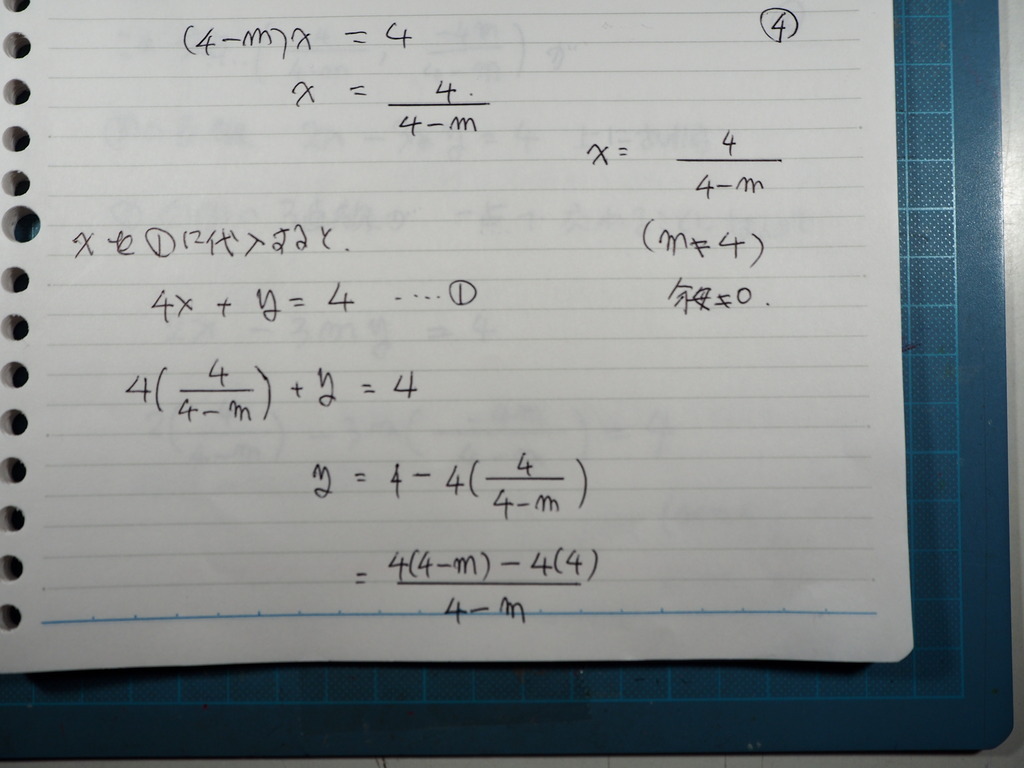 ④
(4-m)x = 4
x = 4/(4-m)
x = 4/(4-m)
(m≠4)
分母≠0.
xを①に代入すると.
4x + y = 4 ....①
4(4/(4-m)) + y = 4
y = 4 - 4(4/(4-m))
= (4(4-m) - 4(4))/(4-m)